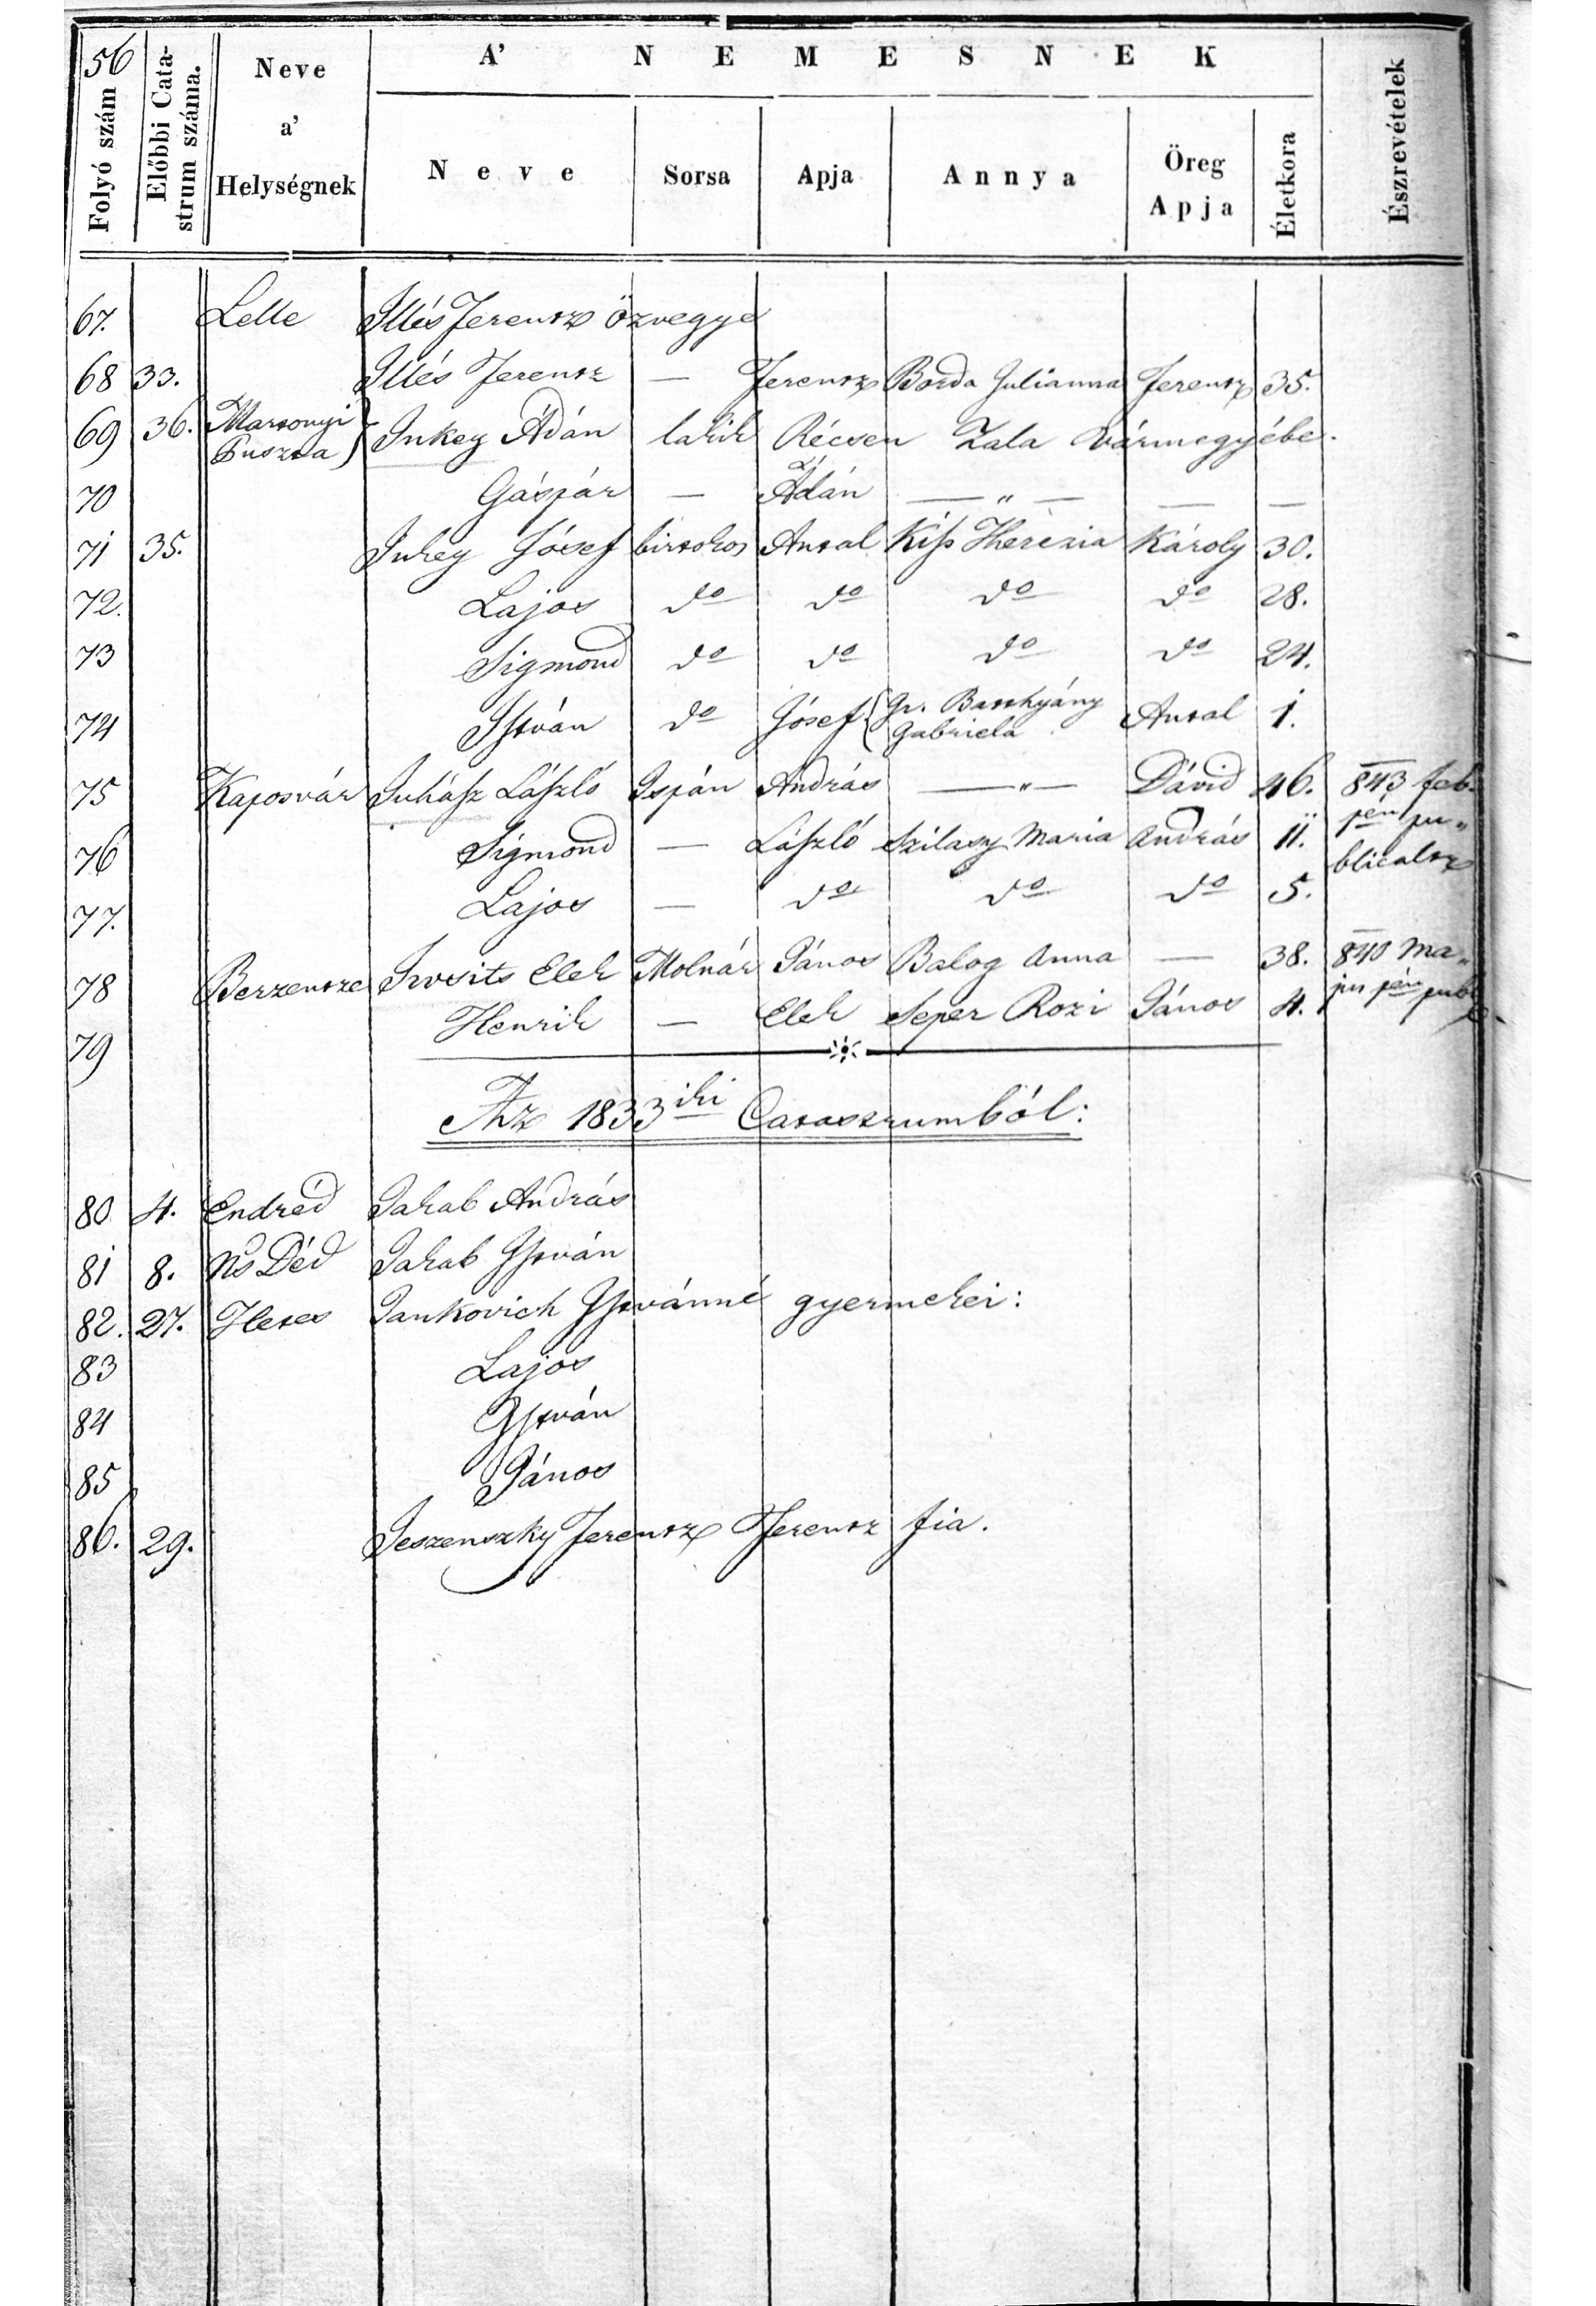 56
A' NEMESNEK
Folyó szám
Előbbi Cata-
strum száma.
Neve
a'
Helységnek
Neve
Sorsa
Apja
Annya
Öreg
Apja
Életkora
Észrevételek
67. Lelle Illés Ferentz özvegye
68 33. Illés Ferentz — Ferentz Borda Julianna Ferentz 35.
69 36. Martonyi
Puszta) Inkey Ádán lakik Récsen Zala Vármegyébe.
70 Gáspár — Ádán — „ — — —
71 35. Inkey Jósef birtokos Antal Kiſs Therézia Károly 30.
72. Lajos do do do do 28.
73 Sigmond do do do do 24.
74 Iſtván do Jósef { Gr. Batthyány
Gabriela Antal 1.
75 Kaposvár Juháſz Láſzló Ispán András — „ — Dávid 46. 843 feb.
76 Sigmond — Láſzló Szilasy Maria András 11. pén pu„
blicaltz
77. Lajos — do do do 5.
78 Berzentze Irosits Elek Molnár János Balog Anna — 38. 840 Ma„
79 Henrik — Elek Seper Rozi János 4. jus pén publ
Az 1833iki Catastrumból:
80 4. Endréd Jakab András
81 8. Ns Déd Jakab Iſtván
82. 27. Hetes Jankovich Iſtvánné gyermekei:
83 Lajos
84 Iſtván
85 János
86. 29. Jeszenszky Ferentz Ferentz fia.